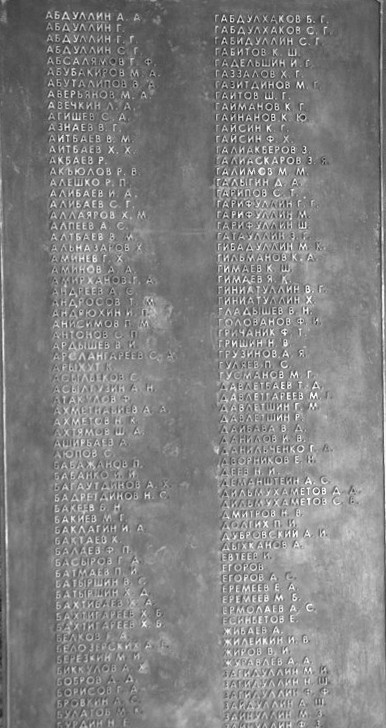 АБДУЛЛИН А. А.
АБДУЛЛИН Г.
АБДУЛЛИН Г. Г.
АБДУЛЛИН С. Г.
АБСАЛЯМОВ Г. Ф.
АБУБАКИРОВ М. А.
АБУТАЛИПОВ В. А.
АВЕРЬЯНОВ М. А.
АВЕЧКИН Л. А.
АГИШЕВ С. А.
АЗНАЕВ В. Г.
АИТБАЕВ В. М.
АИТБАЕВ Х. Х.
АКБАЕВ Р.
АКЪЮЛОВ Р. В.
АЛЕШКО Р. П.
АЛИБАЕВ И. Д.
АЛИБАЕВ С. Г.
АЛЛАЯРОВ Х. М.
АЛПЕЕВ А. С.
АЛТБАЕВ В. М.
АЛЬНАЗАНОВ Х.
АМИНЕВ Г. Х.
АМИНОВ А. А.
АМИРХАНОВ Г. А.
АНДРЕЕВ А. С.
АНДРОСОВ Т. М.
АНДРЮХИН И. П.
АНИСИМОВ П. М.
АНТОНОВ С. П.
АРДЫШЕВ В. И.
АРСЛАНГАРЕЕВ С. А.
АРЫХУТ К.
С.
АСЫЛГУЖИН А. Н.
АТАКУЛОВ Ф.
АХМЕТНАБИЕВ А. А.
АХМЕТОВ Н. К.
АХТЯМОВ Ш. А.
АШИРБАЕВ А.
АЮПОВ С.
БАБАЖАНОВ П.
БАБАНКО Ф. И.
БАГАУТДИНОВ А. Х.
БАДРЕТДИНОВ Н. С.
БАКЕЕВ Б. Н.
БАКИЕВ М. Г.
БАКЛАГИН И. А.
БАКТАЕВ Х.
БАЛАЕВ Ф. П.
БАСЫРОВ Г. А.
БАТМАЕВ П. И.
БАТЫРШИН В. С.
БАТЫРШИН Х. Д.
БАХТИБАЕВ Х. А.
БАХТИГАРЕЕВ Х. Б.
БАХТИГАРЕЕВ Х. Б.
БЕЛКОВ Г. А.
БЕЛОЗЕРСКИХ А. Е.
БЕРЕЗКИН М. И.
БИККУЛОВ А. Х.
БОБРОВ А. Д.
БОРИСОВ Г. А.
БРОВКИН А. С.
БУЛАТОВ М.
Н. Е.
ГАБДУЛХАКОВ Б. Г.
ГАБДУЛХАКОВ С. Г.
ГАБИДУЛЛИН С. Г.
ГАБИТОВ К. Ш.
ГАДЕЛЬШИН И. Г.
ГАЗЗАЛОВ Х. Г.
ГАЗИТДИНОВ М. Г.
ГАИТОВ Ш. Г.
ГАЙМАНОВ К. Г.
ГАЙНАНОВ К. Ю.
ГАЙСИН К. Г.
ГАЙСИН Ф. Х.
ГАЛИАКБЕРОВ З.
ГАЛИАСКАРОВ З. Я.
ГАЛИМОВ М. М.
ГАЛЫГИН Д. А.
ГАРИПОВ С. Т.
ГАРИФУЛЛИН Г. Г.
ГАРИФУЛЛИН М.
ГАРИФУЛЛИН Ш.
ГАТАУЛЛИН З. Г.
ГИБАДУЛЛИН М. К.
ГИЛЬМАНОВ К. А.
ГИМАЕВ К. Ш.
ГИМАЕВ Я. К.
ГИНИАТУЛЛИН В. Г.
ГИНИАТУЛЛИН Х.
ГЛАДЫШЕВ В. Н.
ГОЛОВАНОВ Ф. И.
ГОНЧАНИК Ф. Т.
ГРИШИН Н. В.
ГРУЗИНОВ А. Я.
ГУЛЯЕВ П. С.
ГУСМАНОВ М. Г.
ДАВЛЕТБАЕВ Т. Д.
ДАВЛЕТГАРЕЕВ М. Г.
ДАВЛЕТШИН Г. М.
ДАВЛЕТШИН Р.
В. А.
ДАНИЛОВ И. В.
ДАНИЛЬЧЕНКО Г. А.
ДВОРНИКОВ Е. Н.
ДЕЕВ Н. И.
ДЕМАНШТЕИН А. С.
ДИЛЬМУХАМЕТОВ А. А.
ДИЛЬМУХАМЕТОВ С. Б.
ДМИТРОВ Н. В.
ДОЛГИХ П. И.
ДУБРОВСКИЙ А. И.
ДЫХКАНОВ А.
ЕВТЕЕВ И.
ЕГОРОВ
ЕГОРОВ А. С.
ЕРЕМЕЕВ Е. А.
ЕРЕМЕЕВ М. Б.
ЕРМОЛАЕВ А. С.
ЕСИНБЕТОВ Е.
ЖИБАЕВ А.
ЖИЛЕЙКИН И. В.
ЖИРОВ В. И.
ЖУРАВЛЕВ А. Д.
ЗАГИДУЛЛИН М. И.
ЗАГИДУЛЛИН Н. Ш.
ЗАГИДУЛЛИН Ф. Ф.
ЗАЙДУЛЛИН А. Ш.